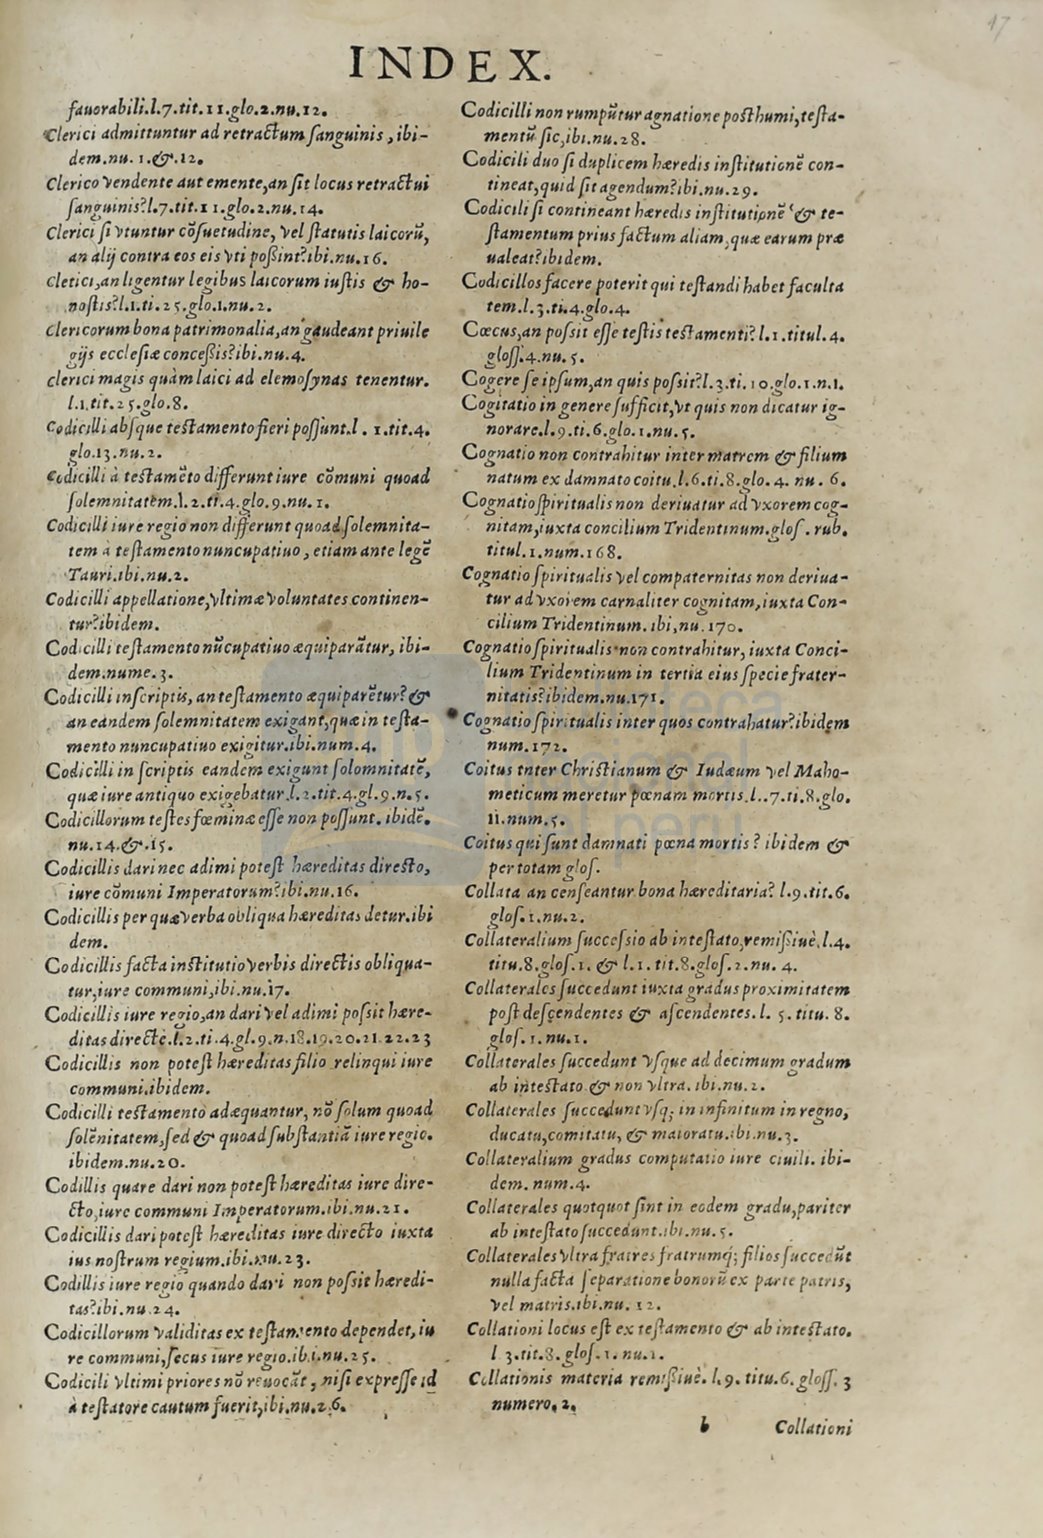 17
INDEX.
fauorabili.l.7.tit.11.glo.2.nu.12.
Clerici admittuntur ad retractum sanguinis, ibi-
dem.nu. 1.&.12.
Clerico vendente aut emente,an sit locus retractui
sanguinis?l.7.tit.11.glo.2.nu.14.
Clerici si vtuntur cōsuetudine, vel statutis laicorū,
an alij contra eos eis vti possint?ibi.nu.16.
cletici,an ligentur legibus laicorum iustis & ho-
nostis?l.1.ti.25.glo.1.nu.2.
clericorum bona patrimonialia,an gaudeant priuile
gijs ecclesiæ concessis?ibi.nu.4.
clerici magis quàm laici ad elemosynas tenentur.
l.1.tit.25.glo.8.
Codicilli absque testamento fieri possunt.l. 1.tit.4.
glo.13.nu.2.
Codicilli à testamēto differunt iure cōmuni quoad
solemnitatem.l.2.ti.4.glo.9.nu.1.
Codicilli iure regio non differunt quoad solemnita-
tem à testamento nuncupatiuo, etiam ante legē
Tauri.ibi.nu.2.
Codicilli appellatione,vltimæ voluntates continen-
tur?ibidem.
Codicilli testamento nūcupatiuo æquiparātur, ibi-
dem.nume.3.
Codicilli inscriptis, an testamento æquiparētur?&
an eandem solemnitatem exigant,quæ in testa-
mento nuncupatiuo exigitur.ibi.num.4.
Codicilli in scriptis eandem exigunt solomnitatē,
quæ iure antiquo exigebatur.l.2.tit.4.gl.9.n.5.
Codicillorum testes fœminæ esse non possunt. ibidē.
nu.14.&.15.
Codicillis dari nec adimi potest hæreditas directo,
iure cōmuni Imperatorum?ibi.nu.16.
Codicillis per quæ verba obliqua hæreditas detur.ibi
dem.
Codicillis facta institutio verbis directis obliqua-
tur,iure communi,ibi.nu.17.
Codicillis iure regio,an dari vel adimi possit hære-
ditas directè.l.2.ti.4.gl.9.n.18.19.20.21.22.23
Codicillis non potest hæreditas filio relinqui iure
communi.ibidem.
Codicilli testamento adæquantur, nō solum quoad
solēnitatem,sed & quoad substantiā iure regio.
ibidem.nu.20.
Codillis quare dari non potest hæreditas iure dire-
cto,iure communi Imperatorum.ibi.nu.21.
Codicillis dari potest hæreditas iure directo iuxta
ius nostrum regium.ibi.nu.23.
Codillis iure regio quando dari non possit hæredi-
tas?ibi.nu.24.
Codicillorum validitas ex testamento dependet, iu
re communi,secus iure regio.ibi.nu.25.
Codicili vltimi priores nō reuocāt, nisi expresse id
à testatore cautum fuerit,ibi.nu.26.
Codicilli non rumpūtur agnatione posthumi,testa-
mentū sic,ibi.nu.28.
Codicili duo si duplicem hæredis institutionē con-
tineat,quid sit agendum?ibi.nu.29.
Codicili si contineant hæredis institutionē & te-
stamentum prius factum aliam,quæ earum præ
ualeat?ibidem.
Codicillos facere poterit qui testandi habet faculta
tem.l.3.ti.4.glo.4.
Cœcus,an possit esse testis testamenti?l.1.titul.4.
gloss.4.nu.5.
Cogere se ipsum,an quis possit?l.3.ti.10.glo.1.n.1.
Cogitatio in genere sufficit,vt quis non dicatur ig-
norare.l.9.ti.6.glo.1.nu.5.
Cognatio non contrahitur inter matrem & filium
natum ex damnato coitu.l.6.ti.8.glo.4. nu. 6.
Cognatio spiritualis non deriuatur ad vxorem cog-
nitam,iuxta concilium Tridentinum.glos. rub.
titul.1.num.168.
Cognatio spiritualis vel compaternitas non deriua-
tur ad vxorem carnaliter cognitam,iuxta Con-
cilium Tridentinum. ibi,nu.170.
Cognatio spiritualis non contrahitur, iuxta Conci-
lium Tridentinum in tertia eius specie frater-
nitatis?ibidem.nu.171.
Cognatio spiritualis inter quos contrahatur?ibidem
num.172.
Coitus tnter Christianum & Iudæum vel Maho-
meticum meretur pœnam mortis.l..7.ti.8.glo.
11.num.5.
Coitus qui sunt damnati pœna mortis? ibidem &
per totam glos.
Collata an censeantur bona hæreditaria? l.9.tit.6.
glos.1.nu.2.
Collateralium successio ab intestato,remissiuè.l.4.
titu.8.glos.1. & l.1.tit.8.glos.2.nu. 4.
Collaterales succedunt iuxta gradus proximitatem
post descendentes & ascendentes.l. 5.titu. 8.
glos.1.nu.1.
Collaterales succedunt vsque ad decimum gradum
ab intestato.& non vltra. ibi.nu.2.
Collaterales succedunt vsq; in infinitum in regno,
ducatu,comitatu, & maioratu.ibi.nu.3.
Collateralium gradus computatio iure ciuili. ibi-
dem. num.4.
Collaterales quotquot sint in eodem gradu,pariter
ab intestato succedunt.ibi.nu.5.
Collaterales vltra fratres fratrumq; filios succedūt
nulla facta separatione bonorū ex parte patris,
vel matris.ibi.nu.12.
Collationi locus est ex testamento & ab intestato.
l 3.tit.8.glos.1.nu.1.
Collationis materia remissiuè. l.9. titu.6. gloss. 3
numero.2.
b Collationi